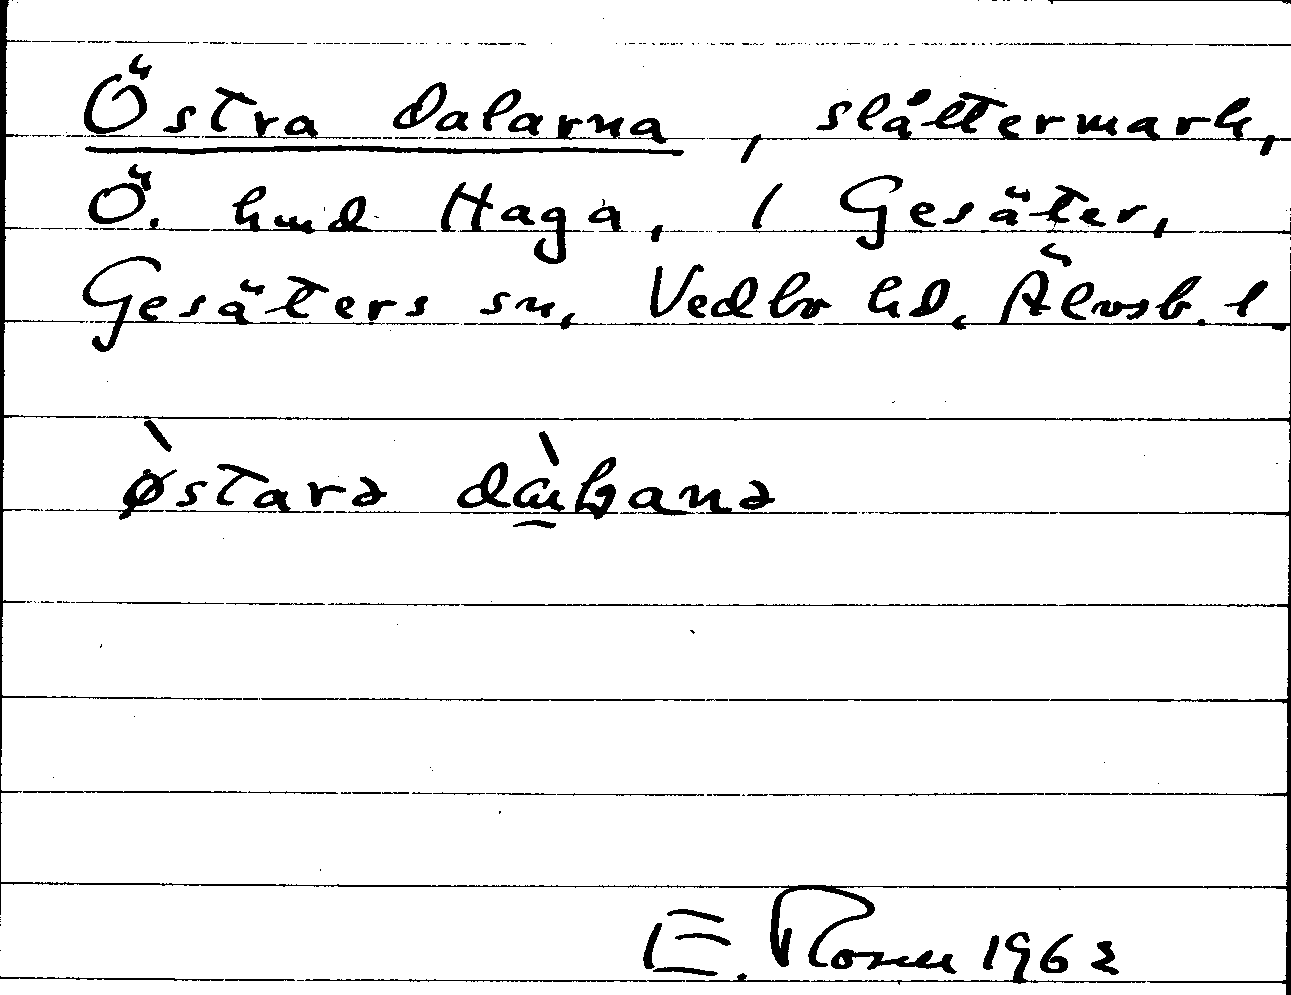 Östra dalarna, slåttermark,
Ö. hmd Haga, 1 Gesäter,
Gesäters sn, Vedbo hd, Älvsb. l.
østarə
E. Rosén 1962